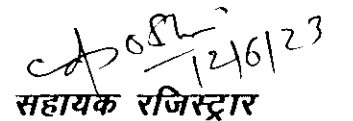 12/6/23
सहायक रजिस्ट्रार